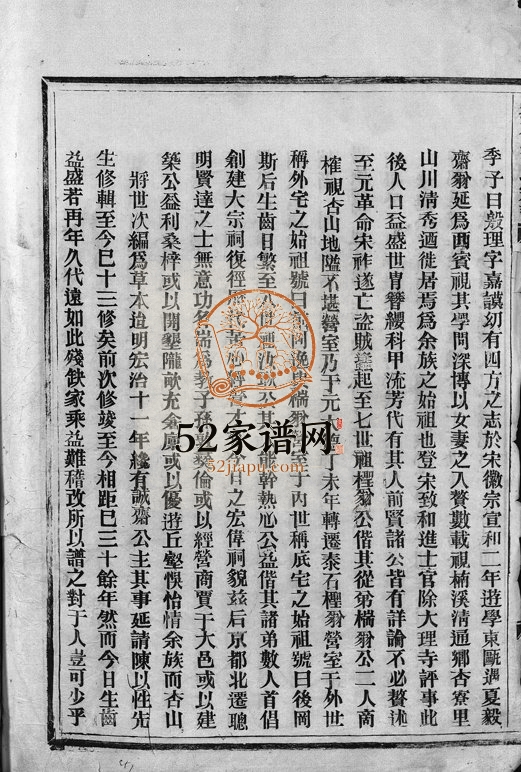 季子曰殷理字嘉誠幼有四方之志於宋徽宗宣和二年遊學東甌遇夏毅
齋翁延爲西賓視其學問深博以女妻之入贅數載視楠溪清通鄉杏寮里
山川清秀遒徙居焉爲余族之始祖也登宋致和進士官除大理寺評事此
後人口益盛世胄簪纓科甲流芳代有其人前賢諸公皆有詳論不必贅述
至元革命宋祚遂亡盜賊蠭起至七世祖檉翁公偕其從弟橋翁公二人南
榷視杏山地隘不堪營室乃于元 丁未年轉遷泰石檉翁營室于外世
稱外宅之始祖號曰 橋翁營室于內世稱底宅之始祖號曰後岡
斯后生齒日繁至八世祖 公其 能幹熱心公益偕其諸弟數人首倡
創建大宗祠復徑 經營 今日之宏偉祠貌茲后京都北遷聰
明賢達之士無意功名 教子孫 倫或以經營商賈于大邑或以建
築公益利桑梓或以開墾隴畝充倉廩或以優遊丘壑悞怡情余族而杏山
將世次編爲草本迨明宏治十一年纔有誠齋公主其事延請陳以性先
生修輯至今已十三修矣前次修竣至今相距已三十餘年然而今日生齒
益盛若再年久代遠如此殘缺家乘益難稽攷所以譜之對于人豈可少乎
52家谱网
52jiapu.com